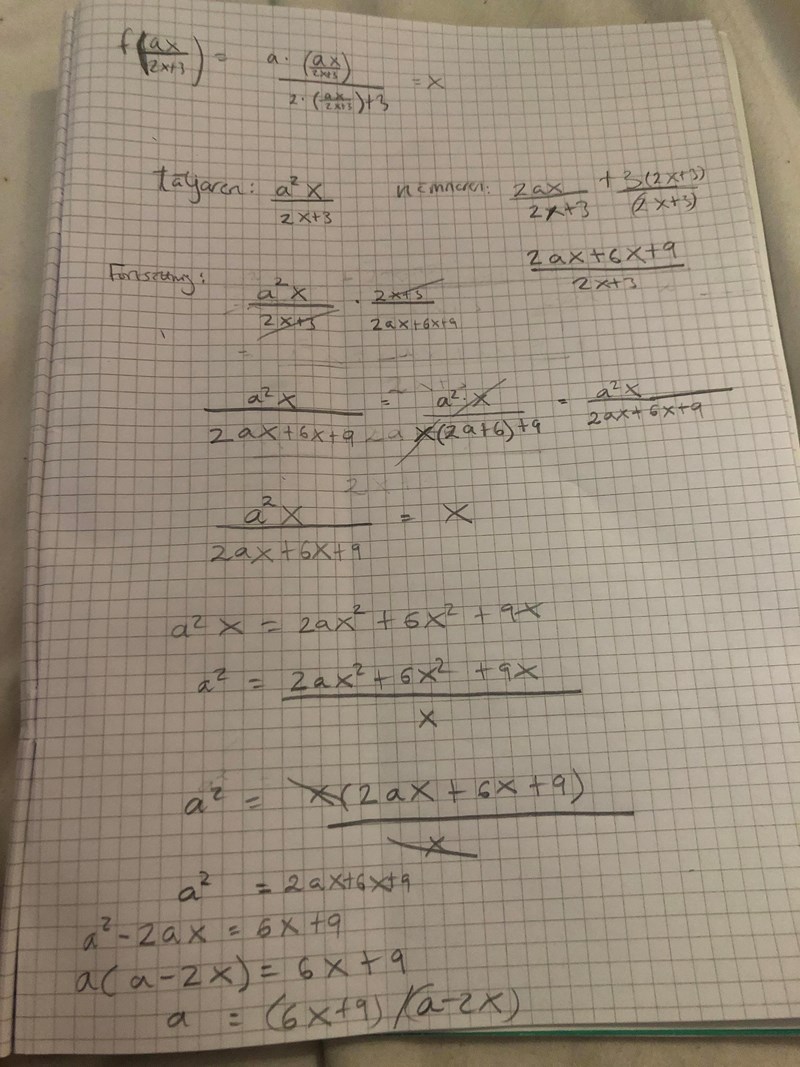 f(ax/(2x+3)) = a · (ax/(2x+3)) / (2 · (ax/(2x+3)) + 3) = x
täljaren: a²x/(2x+3) nämnaren: 2ax/(2x+3) + 3(2x+3)/(2x+3)
(2ax+6x+9)/(2x+3)
Fortsättning:
a²x/(2x+3) · (2x+3)/(2ax+6x+9)
a²x/(2ax+6x+9) = a²·x/(x(2a+6)+9) = a²x/(2ax+6x+9)
a²x/(2ax+6x+9) = x
a²x = 2ax² + 6x² + 9x
a² = (2ax² + 6x² + 9x)/x
a² = x(2ax + 6x + 9)/x
a² = 2ax+6x+9
a² - 2ax = 6x+9
a(a-2x) = 6x+9
a = (6x+9)/(a-2x)